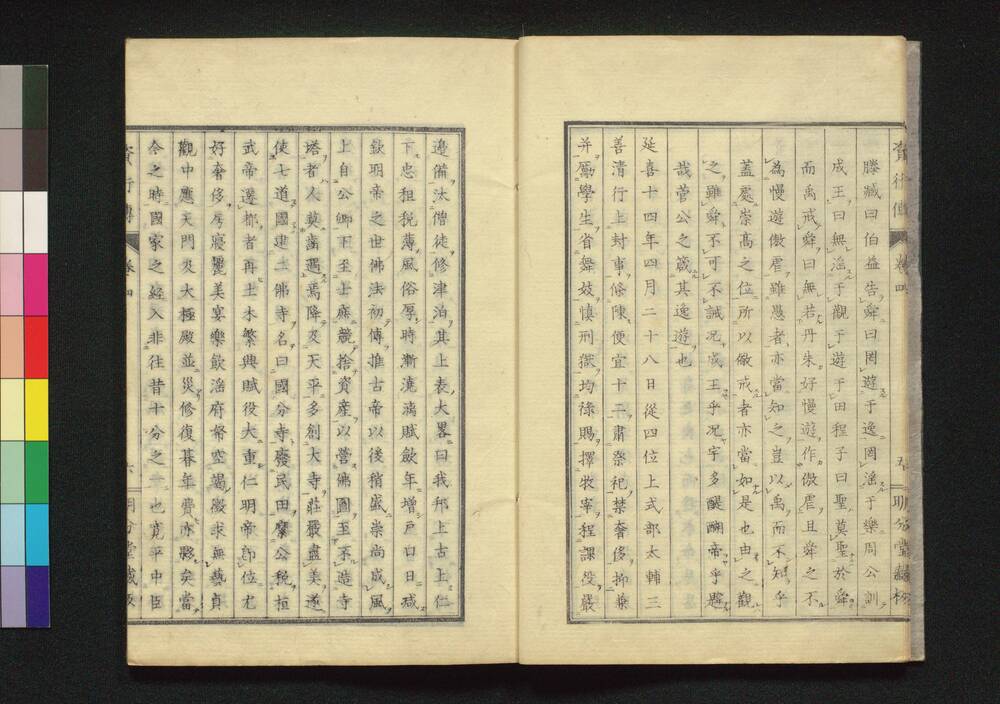 滕臧曰伯益告舜曰罔遊于逸罔滛于樂周公訓
成王曰無滛于觀于遊于田程子曰聖莫聖於舜
而禹戒舜曰無若丹朱好慢遊作傲虐且舜之不
為慢遊傲虐雖愚者亦當知之豈以禹而不知乎
蓋處崇髙之位所以儆戒者亦當如是也由之觀
之雖舜不可不誡况成王乎况宇多醍醐帝乎題
哉菅公之箴其逸遊也
延喜十四年四月二十八日從四位上式部太輔三
善清行上封事條陳便宜十二肅祭祀禁奢侈抑兼
并勵學生省舞妓慎刑獄均祿賜擇牧宰程課役嚴
資行傳 卷四 五 明分堂藏板
邉備汰僧徒修津泊其上表大畧曰我邦上古上仁
下忠租税薄風俗厚時漸澆漓賦斂年增戸口日減
欽明帝之世佛法初傳推古帝以後稍盛崇尚成風
上自公卿下至士庶競捨資産以營佛圖至不造寺
塔者人莫齒遇焉降及天平多創大寺莊嚴盡美遂
使七道國建二佛寺名曰國分寺廢民田糜公税桓
武帝遷都者再土木繁興賦役大重仁明帝即位尤
好奢侈房寢麗美宴樂飲滛府帑空竭徵求無藝貞
觀中應天門及大極殿並災修復暮年費亦夥矣當
今之時國家之經入非往昔十分之一也寛平中臣
資行傳 卷四 六 明分堂藏板